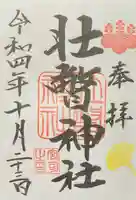 奉拝
壮瞥神社
令和四年十月二十三日